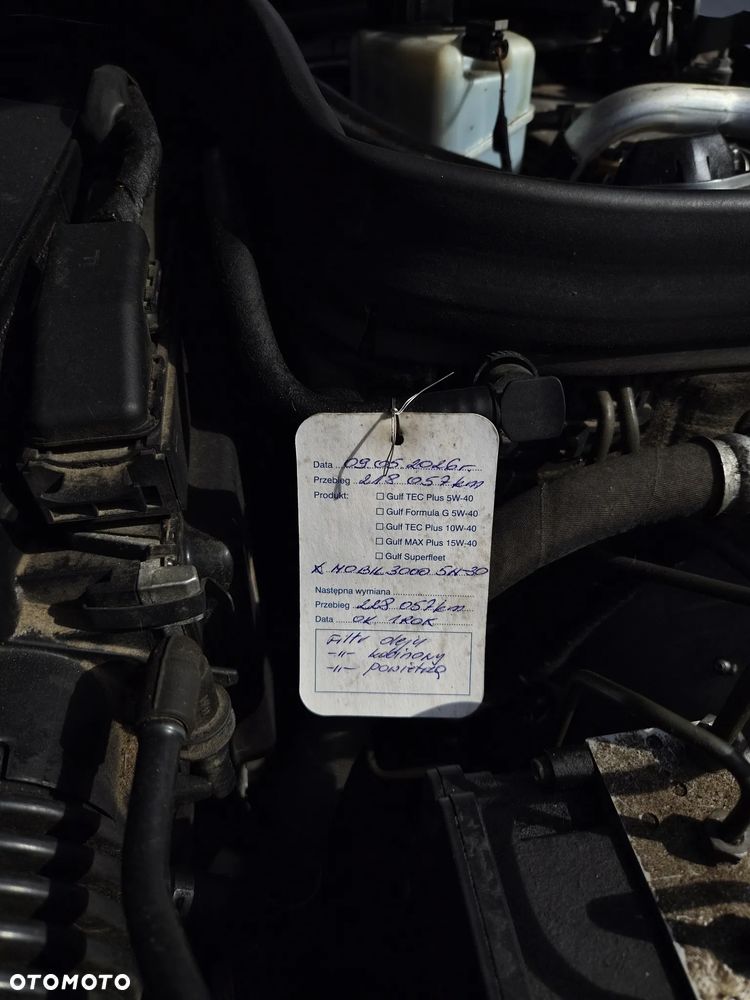 Data 09.05.2026r.
Przebieg 218 057 km
Produkt: ☐ Gulf TEC Plus 5W-40
☐ Gulf Formula G 5W-40
☐ Gulf TEC Plus 10W-40
☐ Gulf MAX Plus 15W-40
☐ Gulf Superfleet
X MOBIL 3000 5W-30
Następna wymiana
Przebieg 228 057 km
Data OK 1 ROK
Filtr oleju
-11- kabinowy
-11- powietrza
OTOMOTO